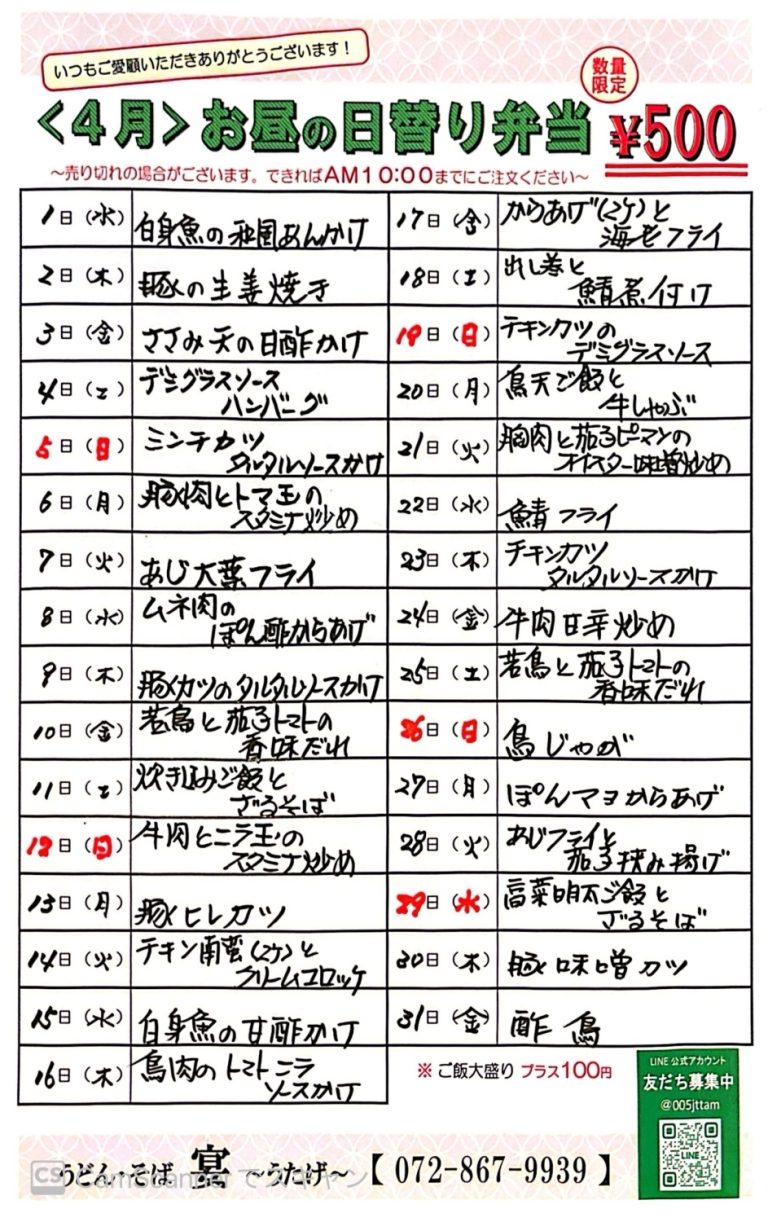 いつもご愛顧いただきありがとうございます!
数量
限定
<4月>お昼の日替り弁当
¥500
~売り切れの場合がございます。できればAM10:00までにご注文ください~
1日(水) 白身魚の和風あんかけ
2日(木) 豚の生姜焼き
3日(金) ささみ天の甘酢かけ
4日(土) デミグラスソース
ハンバーグ
5日(日) ミンチカツ
タルタルソースかけ
6日(月) 豚肉とトマ玉の
スタミナ炒め
7日(火) あじ大葉フライ
8日(水) ムネ肉の
ぽん酢からあげ
9日(木) 豚カツのタルタルソースかけ
10日(金) 若鳥と茄子トマトの
香味だれ
11日(土) 炊き込みご飯と
ざるそば
12日(日) 牛肉とニラ玉の
スタミナ炒め
13日(月) 豚ヒレカツ
14日(火) チキン南蛮(2ケ)と
クリームコロッケ
15日(水) 白身魚の甘酢かけ
16日(木) 鳥肉のトマトニラ
ソースかけ
17日(金) からあげ(2ケ)と
海老フライ
18日(土) 出し巻と
鯖煮付け
19日(日) チキンカツの
デミグラスソース
20日(月) 鳥天ご飯と
牛しゃぶ
21日(火) 胸肉と茄子ピーマンの
オイスター味噌炒め
22日(水) 鯖フライ
23日(木) チキンカツ
タルタルソースかけ
24日(金) 牛肉甘辛炒め
25日(土) 若鳥と茄子トマトの
香味だれ
26日(日) 鳥じゃが
27日(月) ぽんマヨからあげ
28日(火) あじフライと
茄子挟み揚げ
29日(水) 高菜明太ご飯と
ざるそば
30日(木) 豚味噌カツ
31日(金) 酢鳥
※ご飯大盛り プラス100円
LINE 公式アカウント
友だち募集中
@005jttam
LINE
うどん・そば 宴 ~うたげ~【 072-867-9939 】
CS CamScanner でスキャン